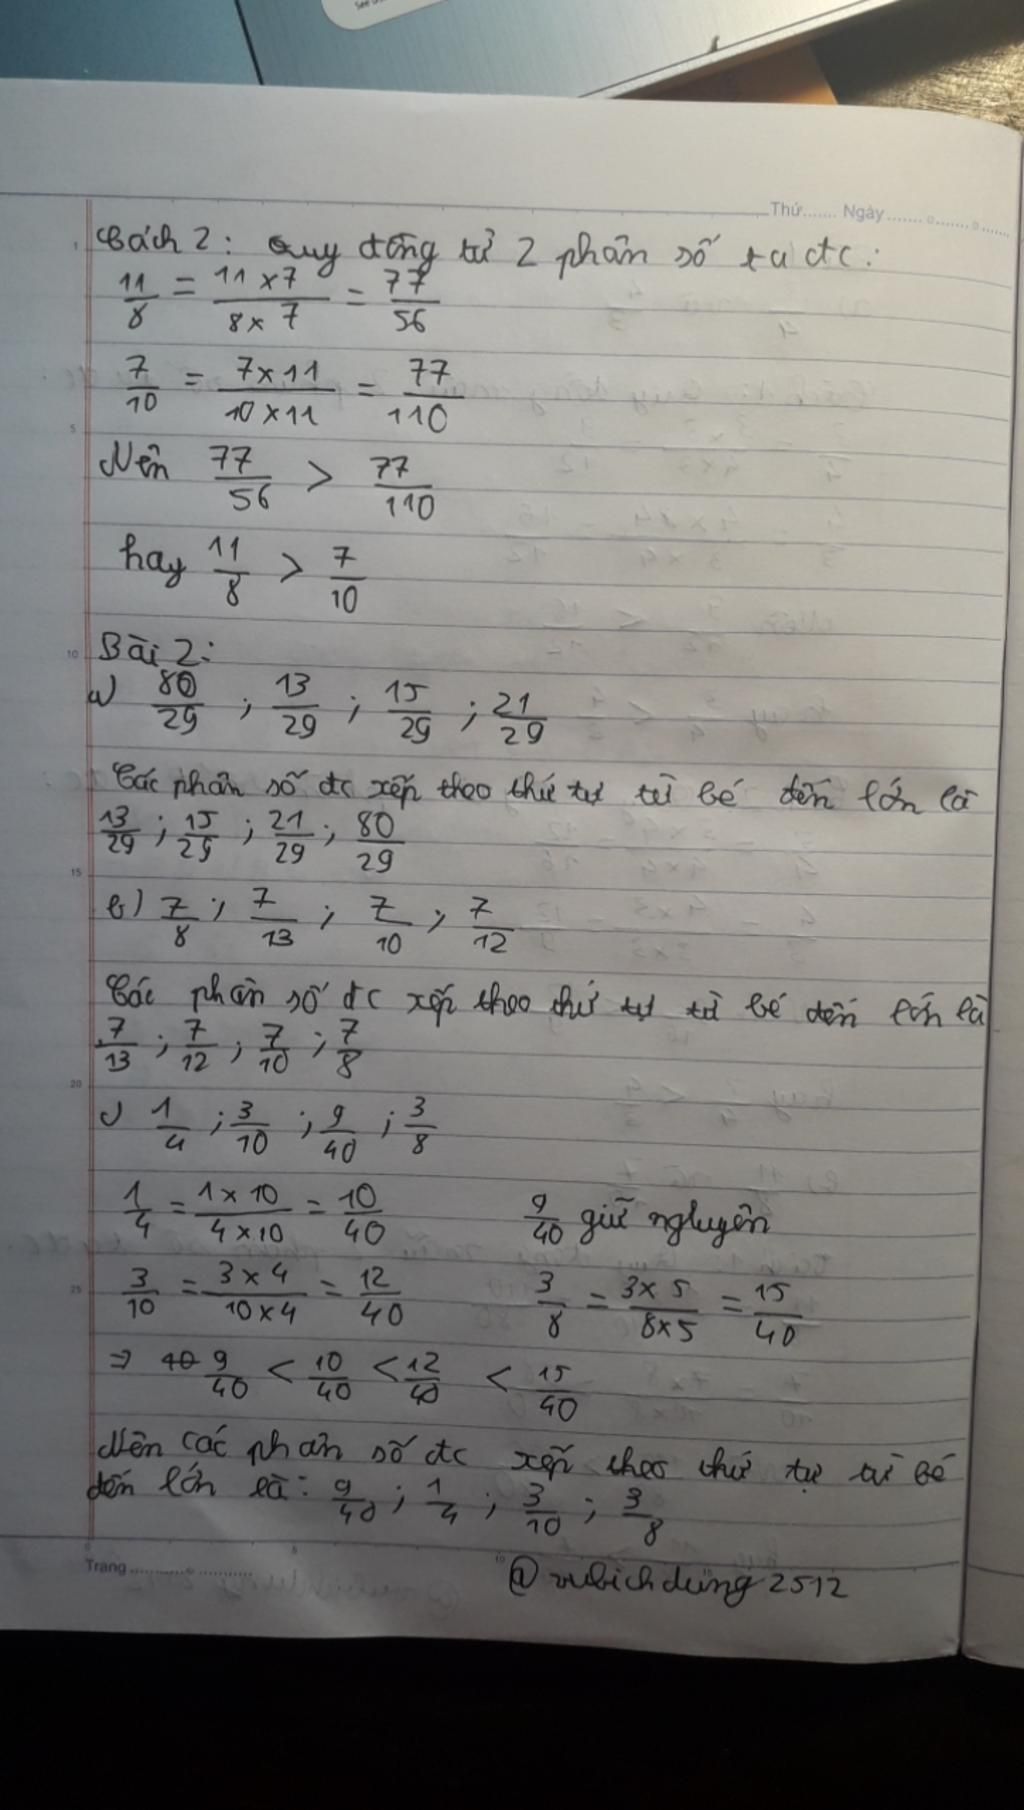 Thứ....... Ngày.......
Cách 2: Quy đồng tử 2 phân số ta đc:
11/8 = 11 x 7 / 8 x 7 = 77/56
7/10 = 7 x 11 / 10 x 11 = 77/110
Nên 77/56 > 77/110
hay 11/8 > 7/10
Bài 2:
a) 80/29 ; 13/29 ; 15/29 ; 21/29
Các phân số đc xếp theo thứ tự từ bé đến lớn là
13/29 ; 15/29 ; 21/29 ; 80/29
b) 7/8 ; 7/13 ; 7/10 ; 7/12
Các phân số đc xếp theo thứ tự từ bé đến lớn là
7/13 ; 7/12 ; 7/10 ; 7/8
c) 1/4 ; 3/10 ; 9/40 ; 3/8
1/4 = 1 x 10 / 4 x 10 = 10/40 9/40 giữ nguyên
3/10 = 3 x 4 / 10 x 4 = 12/40 3/8 = 3 x 5 / 8 x 5 = 15/40
=> 9/40 < 10/40 < 12/40 < 15/40
Nên các phân số đc xếp theo thứ tự từ bé
đến lớn là: 9/40 ; 1/4 ; 3/10 ; 3/8
Trang
@vubichdung2512